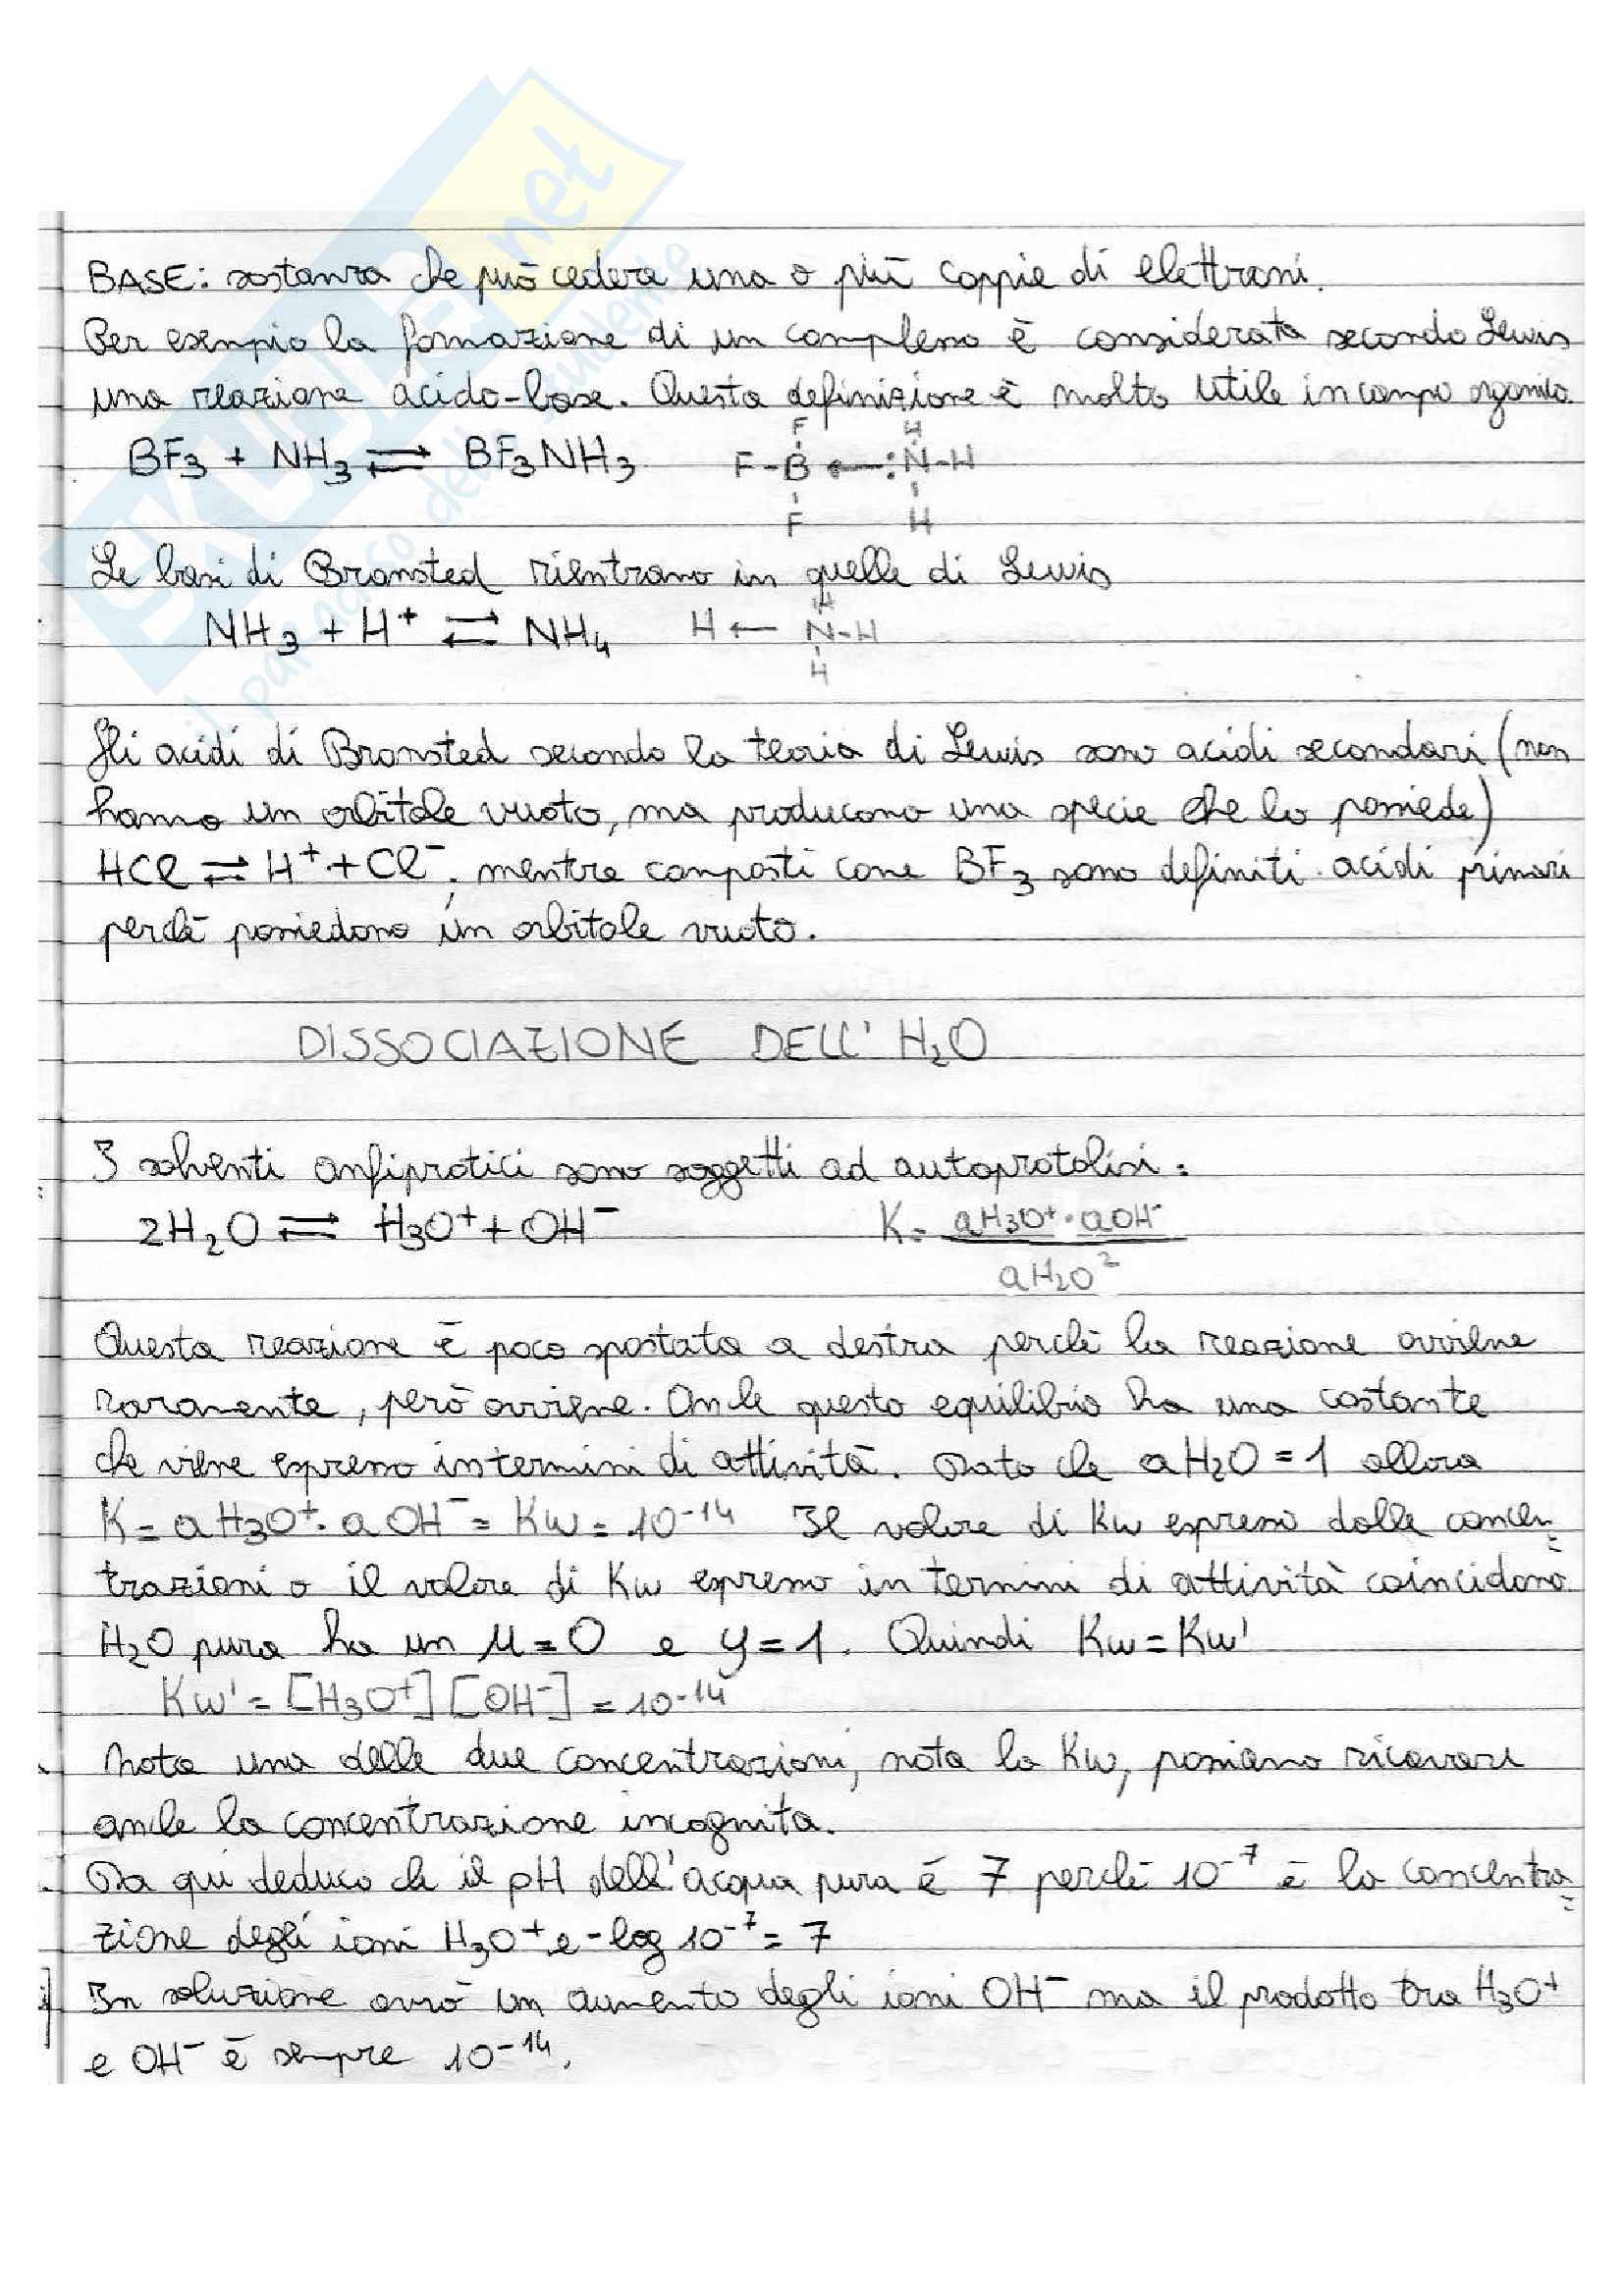 SKUOLA.net
il paradiso dello studente
BASE: sostanza che può cedere una o più coppie di elettroni.
Per esempio la formazione di un complesso è considerata secondo Lewis
una reazione acido-base. Questa definizione è molto utile in campo organico.
BF3 + NH3 ⇌ BF3NH3
F H
F-B ← :N-H
F H
Le basi di Bronsted rientrano in quelle di Lewis
NH3 + H+ ⇌ NH4
H
H ← N-H
H
Gli acidi di Bronsted secondo la teoria di Lewis sono acidi secondari (non
hanno un orbitale vuoto, ma producono una specie che lo possiede)
HCl ⇌ H+ + Cl-; mentre composti come BF3 sono definiti acidi primari
perchè possiedono un orbitale vuoto.
DISSOCIAZIONE DELL'H2O
I solventi anfiprotici sono soggetti ad autoprotolisi:
2H2O ⇌ H3O+ + OH- K = aH3O+ · aOH-
aH2O²
Questa reazione è poco spostata a destra perchè la reazione avviene
raramente, però avviene. Anche questo equilibrio ha una costante
che viene espresso in termini di attività. Dato che aH2O = 1 allora
K = aH3O+ · aOH- = Kw = 10-14 Il valore di Kw espresso dalle concen=
trazioni o il valore di Kw espresso in termini di attività coincidono.
H2O pura ha un μ=0 e y=1. Quindi Kw=Kw'
Kw' = [H3O+][OH-] = 10-14
Nota una delle due concentrazioni, nota la Kw, possiamo ricavare
anche la concentrazione incognita.
Da qui deduco che il pH dell'acqua pura è 7 perchè 10-7 è la concentra=
zione degli ioni H3O+ e -log 10-7 = 7
In soluzione avrò un aumento degli ioni OH- ma il prodotto tra H3O+
e OH- è sempre 10-14.